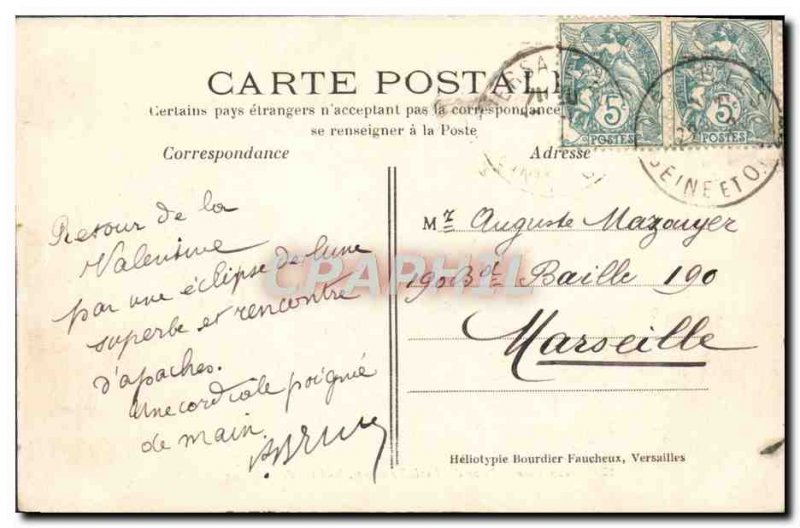 CARTE POSTALE
Certains pays étrangers n'acceptant pas la correspondance
se renseigner à la Poste
Correspondance
Adresse
5c
POSTES
5c
POSTES
VERSA
SEINE ET O.
Retour de la
Valentine
par une éclipse de lune
superbe et rencontre
d'apaches.
Une cordiale poignée
de main
Mr Auguste Mazouyer
190 Bd Baille 190
Marseille
CPAPHIL
Héliotypie Bourdier Faucheux, Versailles